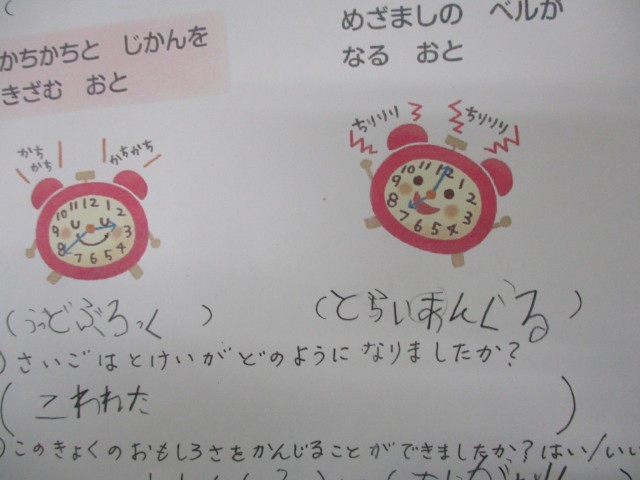 かちかちと じかんを
きざむ おと
めざましの ベルが
なる おと
かち
かち
かちかち
ちりりり
ちりりり
10 11 12 1 2 3 4 5 6 7 8 9
10 11 12 1 2 3 4 5 6 7 8 9
(うっどぶろっく)
(とらいあんぐる)
)さいごはとけいがどのようになりましたか?
(こわれた)
)このきょくのおもしろさをかんじることができましたか?はい/いい